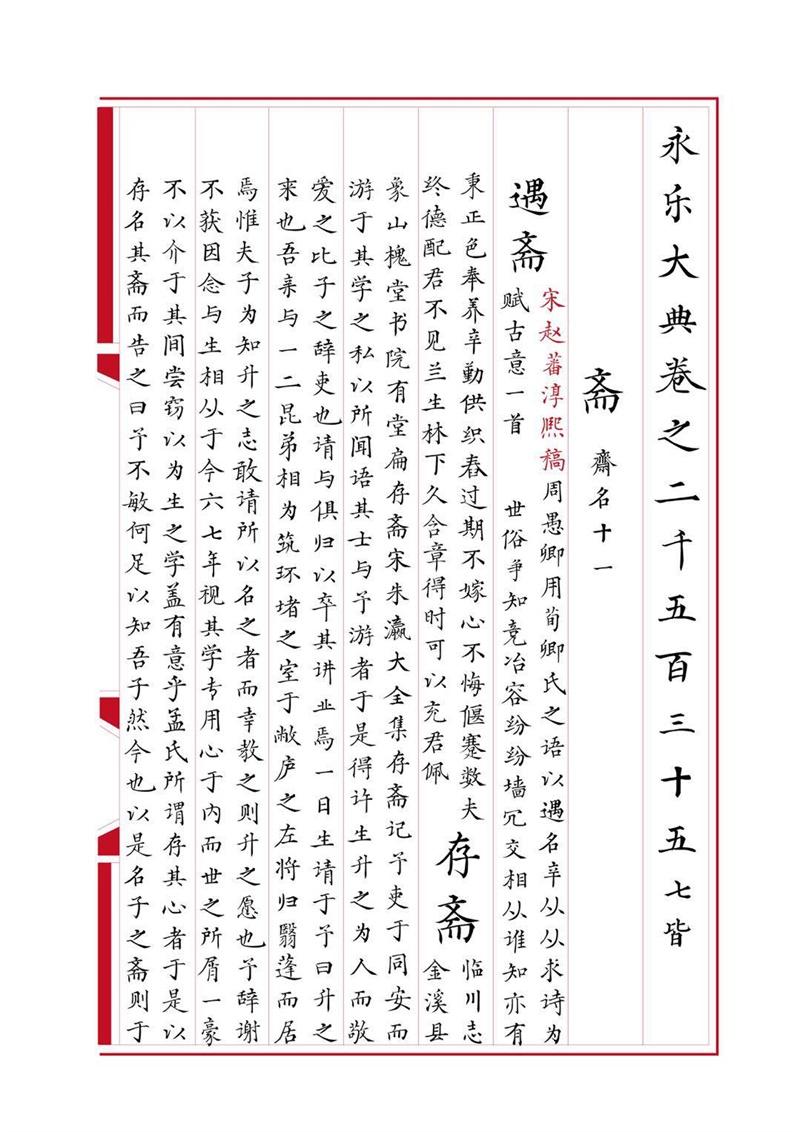 永乐大典卷之二千五百三十五七皆
斋 齋名十一
遇斋
宋赵蕃淳熙稿周愚卿用荀卿氏之语以遇名辛从从求诗为
赋古意一首 世俗争知竞冶容纷纷墙冗交相从谁知亦有
秉正色奉养辛勤供织舂过期不嫁心不悔偃蹇数夫
终德配君不见兰生林下久含章得时可以充君佩
存斋
临川志
金溪县
象山槐堂书院有堂扁存斋宋朱瀛大全集存斋记予吏于同安而
游于其学之私以所闻语其士与予游者于是得许生升之为人而敬
爱之比子之辞吏也请与俱归以卒其讲业焉一日生请于予曰升之
来也吾亲与一二昆弟相为筑环堵之室于敝庐之左将归翳蓬而居
焉惟夫子为知升之志敢请所以名之者而幸教之则升之愿也予辞谢
不获因念与生相从于今六七年视其学专用心于内而世之所屑一豪
不以介于其间尝窃以为生之学盖有意乎孟氏所谓存其心者于是以
存名其斋而告之曰予不敏何足以知吾子然今也以是名子之斋则于